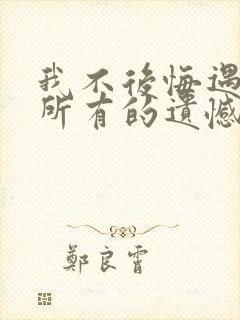 我不後悔遇
所有的遺憾
鄭良霄